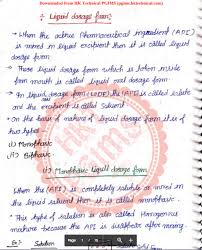 Downloaded from HK Technical PGIMS (pgims.hktechnical.com)
÷ Liquid dosage form:
→ When the active Pharmaceutical ingredient (API)
is mixed in liquid excipient then it is called liquid
dosage form.
→ These liquid dosage form which is taken inside
from mouth is called liquid oral dosage form.
→ In liquid dosage form (LODF) the (API) is called solute
and the excipient is called solvent
→ On the basis of nature of liquid dosage form it is of
two types
i) Monophasic
ii) Biphasic
i) Monophasic liquid dosage form
When the (API) is completely soluble or mixed in
the liquid solvent then it is called monophasic.
→ This type of solution is also called Homogenous
mixture because the API is disappear after mixing.
Eg:- Solution
Page 1